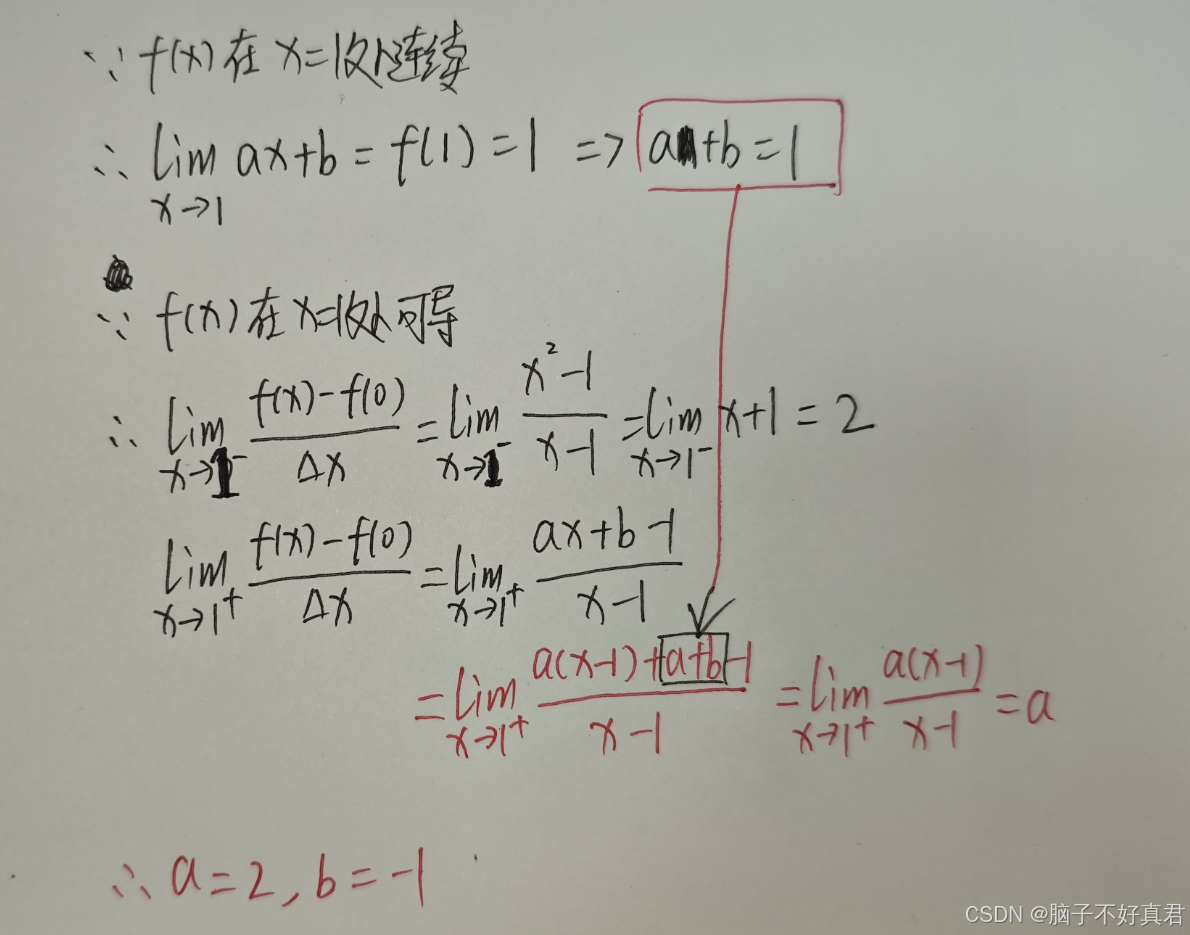 ∵ f(x) 在 x=1处连续
∴ lim x→1 ax+b = f(1) = 1 => a+b=1
∵ f(x) 在 x=1处可导
∴ lim x→1⁻ (f(x)-f(0))/Δx = lim x→1⁻ (x²-1)/(x-1) = lim x→1⁻ x+1 = 2
lim x→1⁺ (f(x)-f(0))/Δx = lim x→1⁺ (ax+b-1)/(x-1)
= lim x→1⁺ (a(x-1)+a+b-1)/(x-1) = lim x→1⁺ a(x-1)/(x-1) = a
∴ a=2, b=-1
CSDN @脑子不好真君